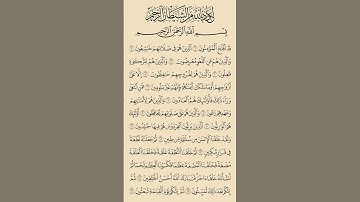 أَعُوذُ بِاللَّهِ مِنَ الشَّيْطَانِ الرَّجِيمِ
بِسْمِ اللَّهِ الرَّحْمَٰنِ الرَّحِيمِ
قَدْ أَفْلَحَ الْمُؤْمِنُونَ ١ الَّذِينَ هُمْ فِي صَلَاتِهِمْ خَٰشِعُونَ ٢
وَالَّذِينَ هُمْ عَنِ اللَّغْوِ مُعْرِضُونَ ٣ وَالَّذِينَ هُمْ لِلزَّكَوٰةِ
فَٰعِلُونَ ٤ وَالَّذِينَ هُمْ لِفُرُوجِهِمْ حَٰفِظُونَ ٥ إِلَّا عَلَىٰ
أَزْوَٰجِهِمْ أَوْ مَا مَلَكَتْ أَيْمَٰنُهُمْ فَإِنَّهُمْ غَيْرُ مَلُومِينَ ٦ فَمَنِ ابْتَغَىٰ
وَرَاءَ ذَٰلِكَ فَأُولَٰئِكَ هُمُ الْعَادُونَ ٧ وَالَّذِينَ هُمْ لِأَمَٰنَٰتِهِمْ
وَعَهْدِهِمْ رَٰعُونَ ٨ وَالَّذِينَ هُمْ عَلَىٰ صَلَوَٰتِهِمْ يُحَافِظُونَ ٩ أُولَٰئِكَ
هُمُ الْوَٰرِثُونَ ١٠ الَّذِينَ يَرِثُونَ الْفِرْدَوْسَ هُمْ فِيهَا خَٰلِدُونَ ١١
وَلَقَدْ خَلَقْنَا الْإِنسَٰنَ مِن سُلَٰلَةٍ مِّن طِينٍ ١٢ ثُمَّ جَعَلْنَٰهُ نُطْفَةً
فِي قَرَارٍ مَّكِينٍ ١٣ ثُمَّ خَلَقْنَا النُّطْفَةَ عَلَقَةً فَخَلَقْنَا الْعَلَقَةَ
مُضْغَةً فَخَلَقْنَا الْمُضْغَةَ عِظَٰمًا فَكَسَوْنَا الْعِظَٰمَ لَحْمًا ثُمَّ
أَنشَأْنَٰهُ خَلْقًا ءَاخَرَ فَتَبَارَكَ اللَّهُ أَحْسَنُ الْخَٰلِقِينَ ١٤ ثُمَّ
إِنَّكُم بَعْدَ ذَٰلِكَ لَمَيِّتُونَ ١٥ ثُمَّ إِنَّكُمْ يَوْمَ الْقِيَٰمَةِ تُبْعَثُونَ ١٦